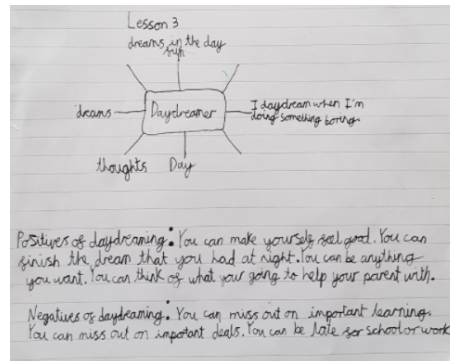 Lesson 3
dreams in the day
sun
dreams
Daydreamer
I daydream when I'm
doing something boring.
thoughts
Day
Positives of daydreaming: You can make yourself feel good. You can
finish the dream that you had at night. You can be anything
you want. You can think of what your going to help your parent with.
Negatives of daydreaming: You can miss out on important learning.
You can miss out on important deals. You can be late for school or work